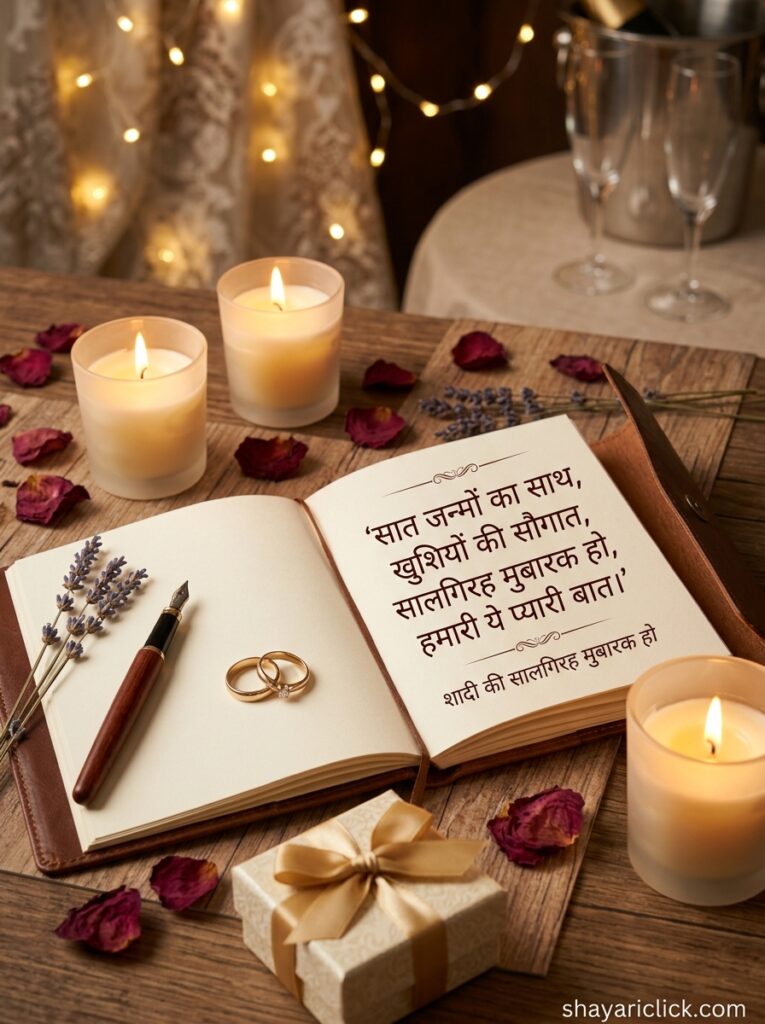 ‘सात जन्मों का साथ,
खुशियों की सौगात,
सालगिरह मुबारक हो,
हमारी ये प्यारी बात।’
शादी की सालगिरह मुबारक हो
shayariclick.com